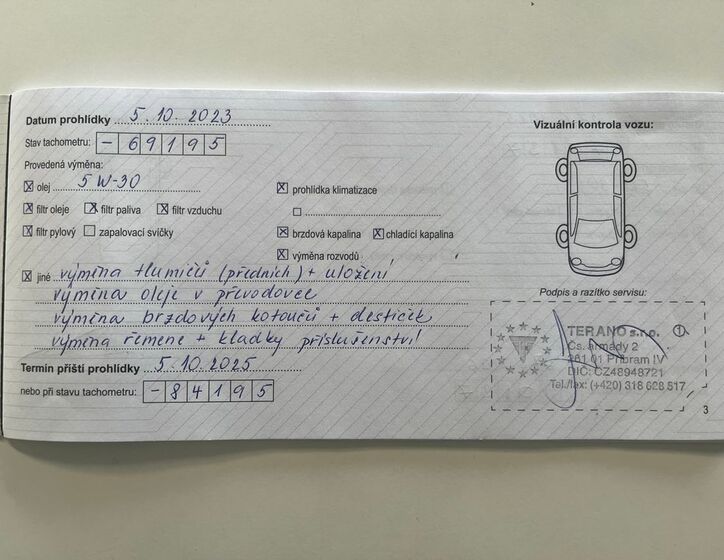 Datum prohlídky 5.10.2023
Stav tachometru: - 69195
Provedená výměna:
☒ olej 5W-30
☒ filtr oleje ☒ filtr paliva ☒ filtr vzduchu
☒ filtr pylový ☐ zapalovací svíčky
☒ prohlídka klimatizace
☐
☒ brzdová kapalina ☒ chladící kapalina
☒ výměna rozvodů
☒ jiné výmina tlumičů (předních) + uložení
výmina oleje v převodovce
výmina brzdových kotoučů + destiček
výmina řemene + kladky příslušenství!
Termín příští prohlídky 5.10.2025
nebo při stavu tachometru: - 84195
Vizuální kontrola vozu:
Podpis a razítko servisu:
TERANO s.r.o. ①
Čs. armády 2
261 01 Příbram IV
DIČ: CZ48948721
Tel./fax: (+420) 318 628 517
3